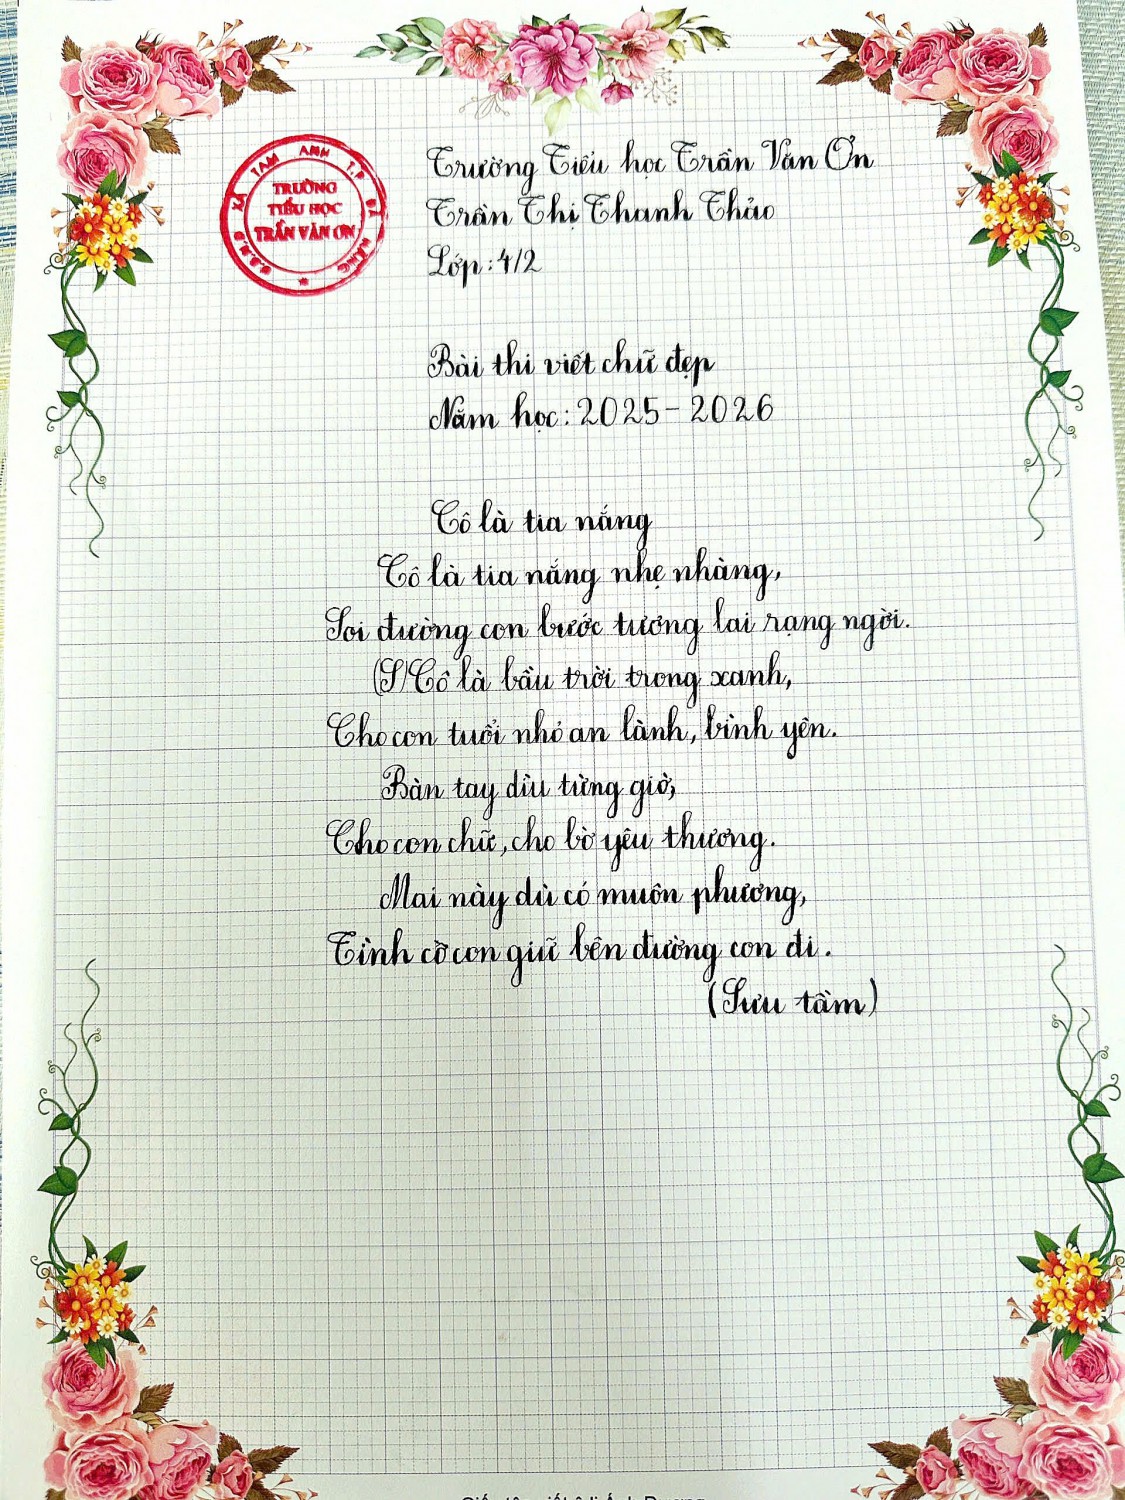 U.B.N.D XÃ TAM ANH T.P ĐÀ NẴNG
TRƯỜNG
TIỂU HỌC
TRẦN VĂN ƠN
Trường Tiểu học Trần Văn Ơn
Trần Thị Thanh Thảo
Lớp: 4/2
Bài thi viết chữ đẹp
Năm học: 2025-2026
Cô là tia nắng
Cô là tia nắng nhẹ nhàng,
Soi đường con bước tương lai rạng ngời.
(S)Cô là bầu trời trong xanh,
Cho con tuổi nhỏ an lành, bình yên.
Bàn tay dìu từng giờ,
Cho con chữ, cho bờ yêu thương.
Mai này dù có muôn phương,
Tình cô con giữ bên đường con đi.
(Sưu tầm)